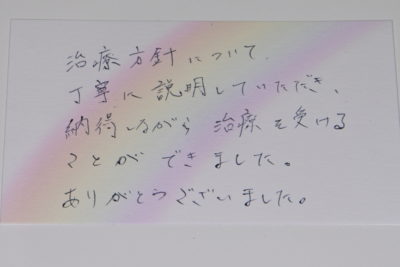 治療方針について、
丁寧に説明していただき、
納得しながら治療を受ける
ことができました。
ありがとうございました。